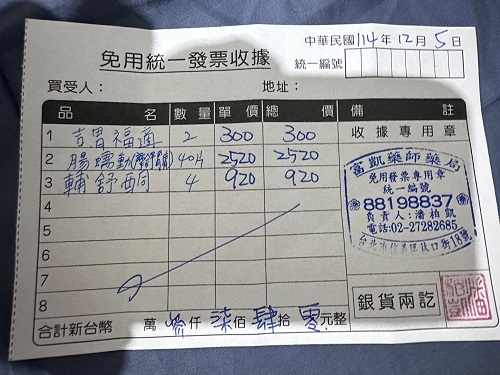 中華民國114年12月5日
免用統一發票收據
統一編號
買受人：
地址：
品名 數量 單價 總價 備註
1 吉胃福適 2 300 300
收據專用章
2 腸蠕動 40片 2520 2520
3 輔舒酮 4 920 920
4
5
6
7
8
富凱藥師藥局
免用發票專用章
統一編號
88198837
負責人:潘柏凱
電話:02-27282685
台北市信義區林口街18號
銀貨兩訖
合計新台幣 萬 參仟 柒佰 肆拾 零元整